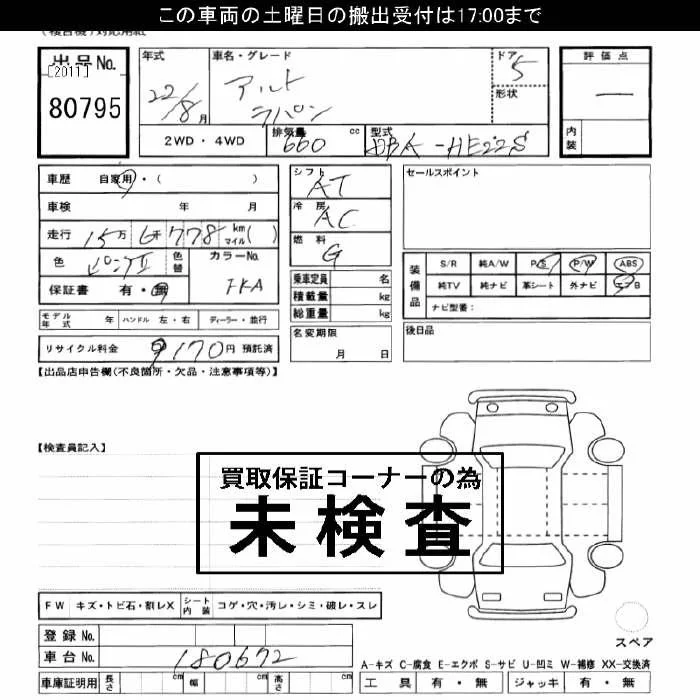 この車両の土曜日の搬出受付は17:00まで
出品No.
[2011]
80795
年式
22/8月
車名・グレード
アルト
ラパン
ドア
5
形状
評価点
—
内装
2WD・4WD
排気量
660 cc
型式
DBA-HE22S
車歴 自家用・( )
車検 年 月
走行 15万6千778 km マイル( )
色 ピンクII 色替
カラーNo.
保証書 有・無
シフト AT
冷房 AC
燃料 G
乗車定員 名
積載量 kg
総重量 kg
セールスポイント
装備品
S/R 純A/W P/S P/W ABS
純TV 純ナビ 革シート 外ナビ エアB
ナビ型番：
モデル年式 年 ハンドル 左・右 ディーラー・並行
名変期限
月 日
後日品
リサイクル料金 9170円 預託済
【出品店申告欄(不良箇所・欠品・注意事項等)】
【検査員記入】
買取保証コーナーの為
未検査
FW キズ・トビ石・割レX シート内装 コゲ・穴・汚レ・シミ・破レ・スレ
スペア
登録No.
車台No. 180672
A-キズ C-腐食 E-エクボ S-サビ U-凹ミ W-補修 XX-交換済
車庫証明用 長さ cm 幅 cm 高さ cm
工具 有・無 ジャッキ 有・無